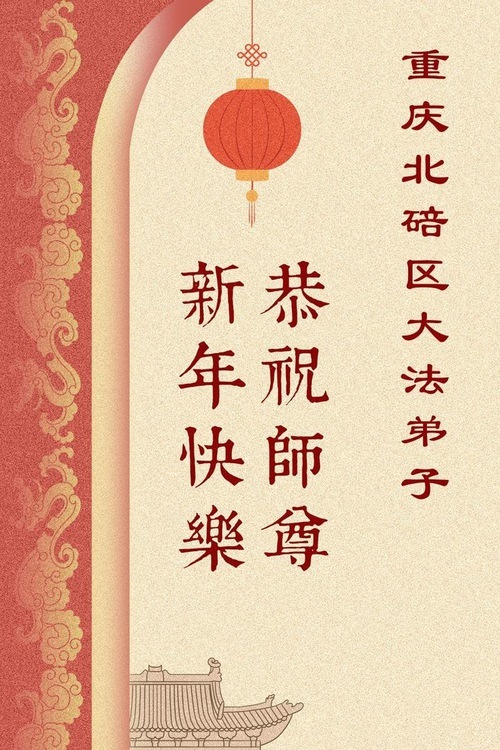 重庆北碚区大法弟子
恭祝師尊
新年快樂